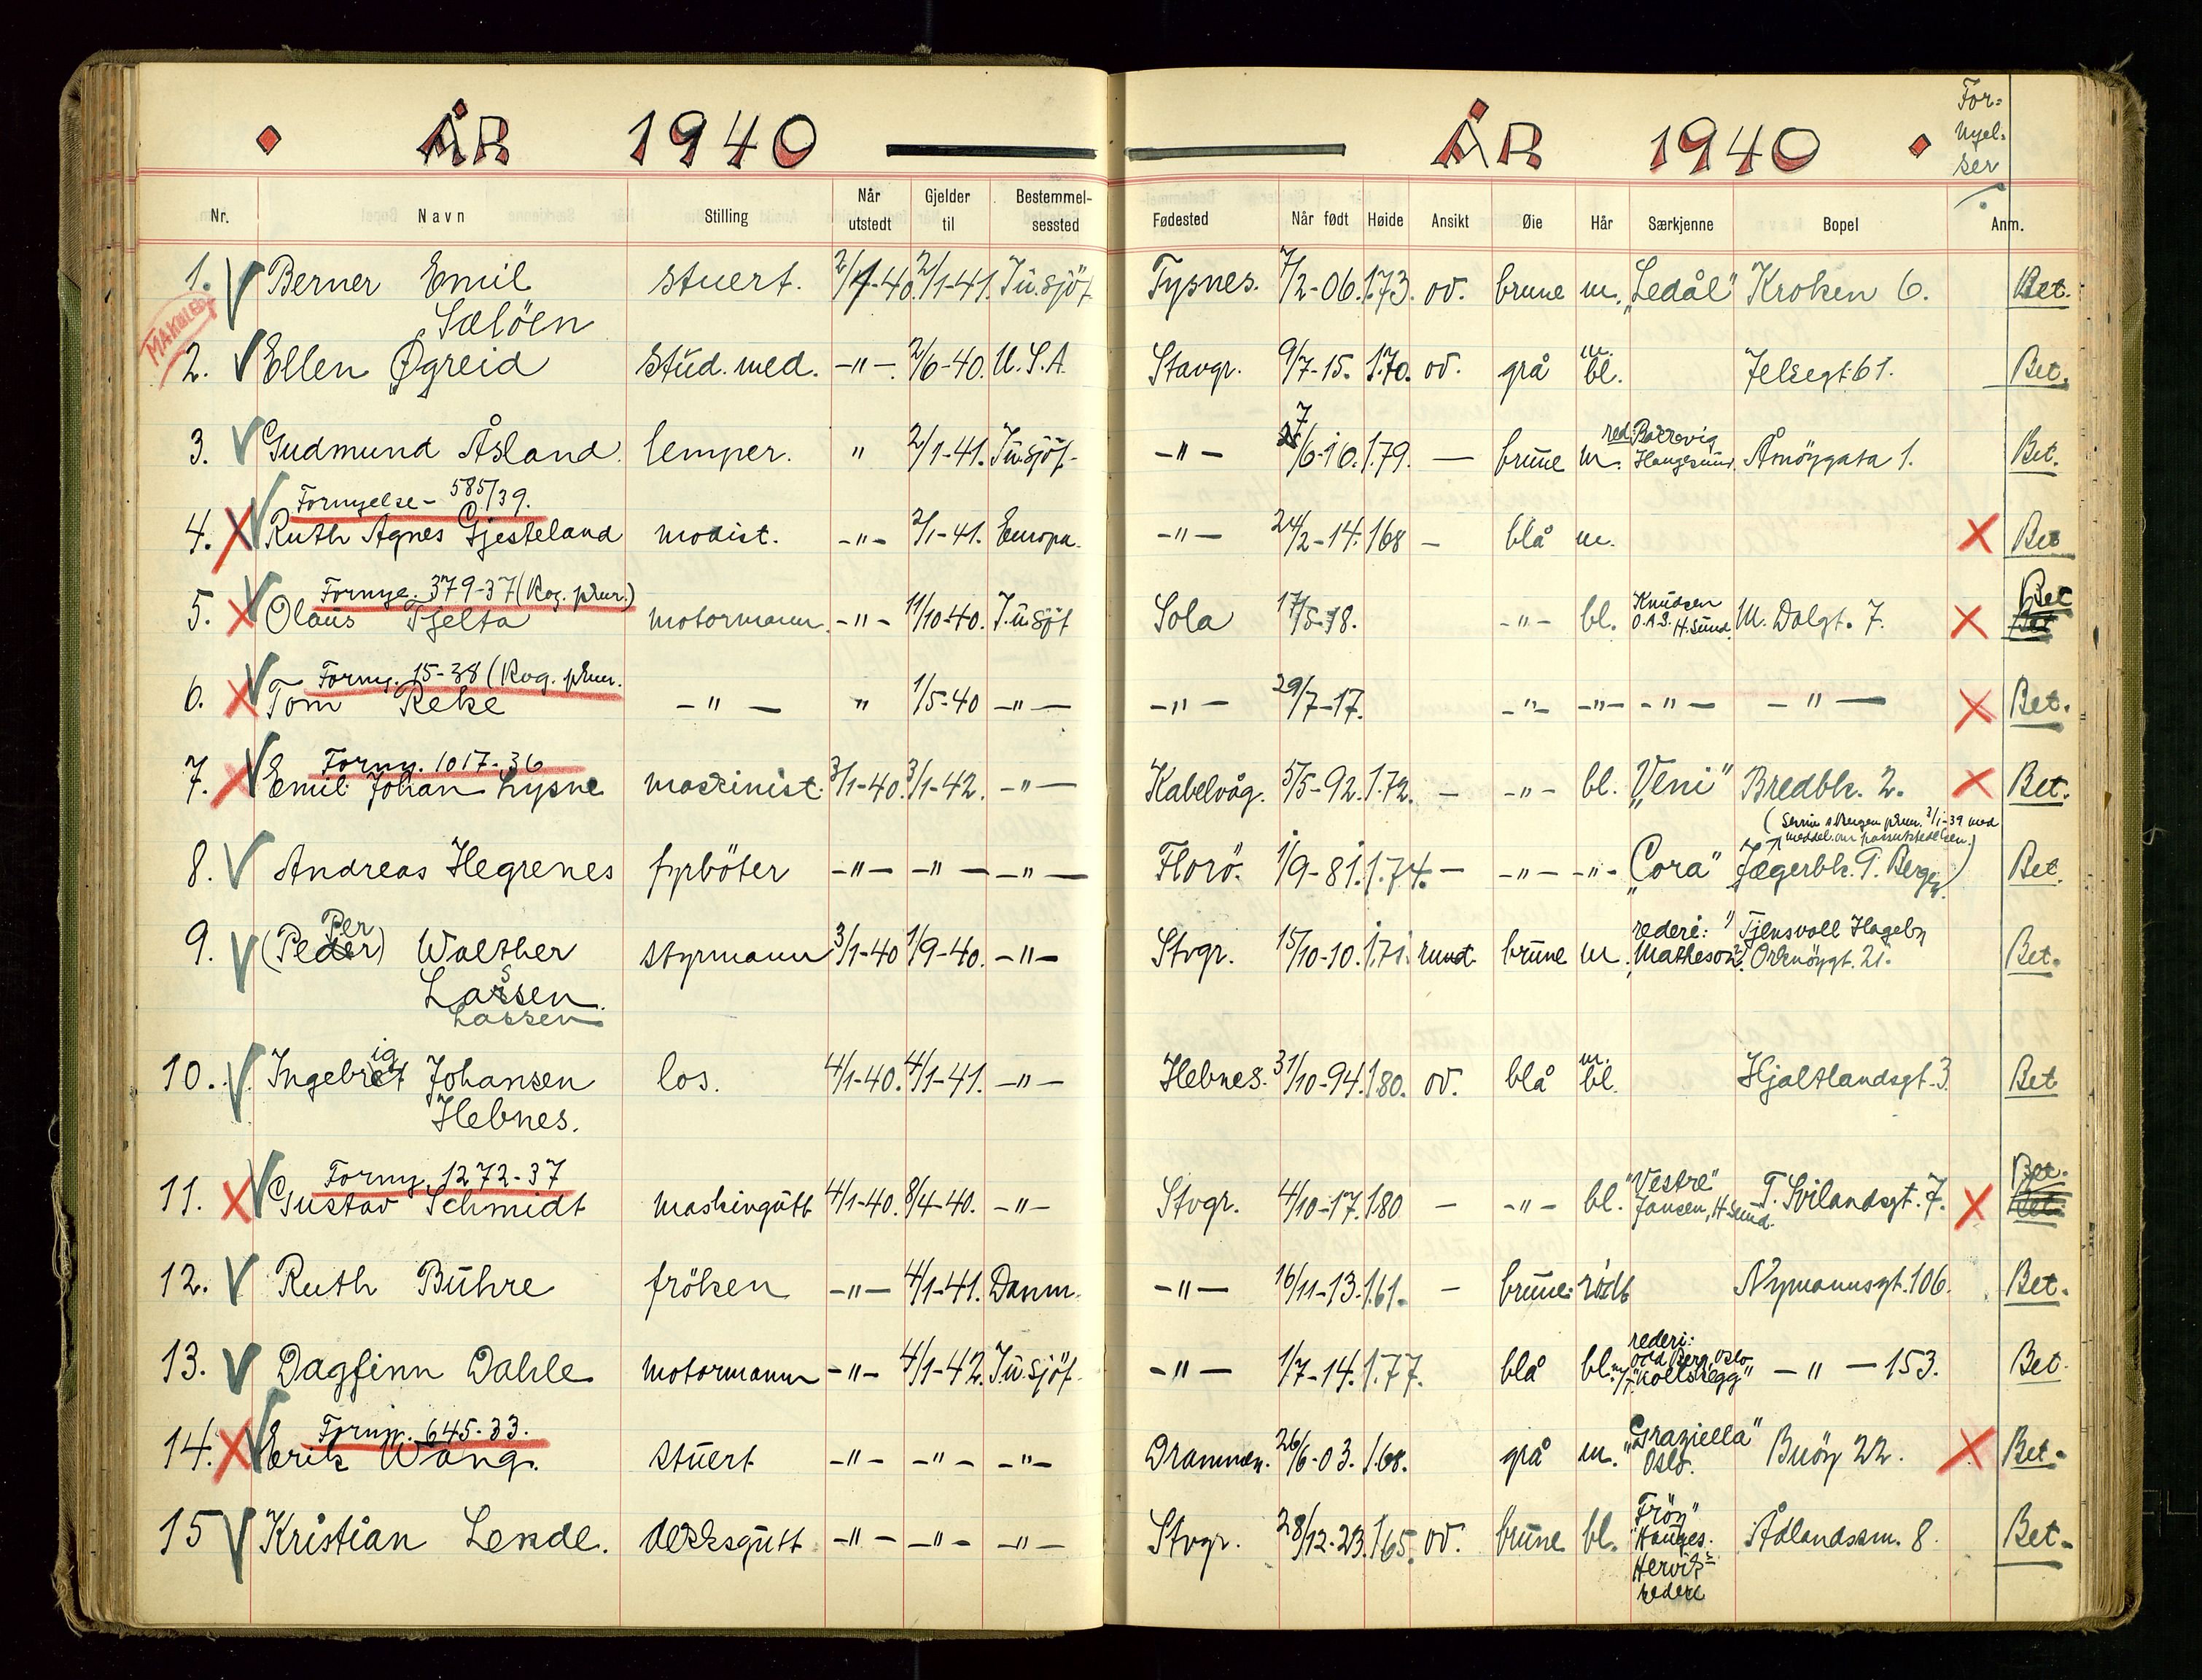 ÅR 1940
ÅR 1940
For=
nyel=
ser
Nr. Navn Stilling Når utstedt Gjelder til Bestemmel-sessted Fødested Når født Høide Ansikt Øie Hår Særkjenne Bopel Anm.
1. Berner Emil stuert. 2/1-40. 2/1-41. Tü.sjöf. Tysnes. 7/2-06. 1.73. ov. brune m. "Ledål" Kroken 6. Bet.
Sæløen
MAKULERT
2. Ellen Øgreid stud. med. -"-. 2/6-40. U.S.A. Stavgr. 9/7-15. 1.70. ov. grå m. bl. Jelsegt. 61. Bet.
3. Gudmund Åsland. lemper. " 2/1-41. Tü.sjöf. -"- 7/6-10. 1.79. — brune m. red. Haugesund. Åmöygata 1. Bet.
Fornyelse - 585/39.
4. Ruth Agnes Gjesteland modist. -"- 2/1-41. Europa. -"- 24/2-14. 168 - blå m. Bet
Fornye. 379-37 (Rog. pkmr.)
5. Olaus Tjelta motormann. -"- 11/10-40. Tü.sjöf Sola 17/5-18. -"- bl. Knudsen O.A.S. H.sund. M. Dalgt. 7. Bet
Forny. 15-38 (Rog. pkmr.
6. Tom Reke -"- " 1/5-40 -"- -"- 29/7-17. -"- -"- -"- -"- Bet.
Forny. 1017-36
7. Emil Johan Lysne maskinist. 3/1-40. 3/1-42. -"- Kabelvåg. 5/5-92. 1.72. - -"- bl. "Veni" Bredbk. 2. Bet.
8. Andreas Hegrenes fyrböter -"- -"- -"- Florö. 1/9-81. 1.74. - -"- -"- "Cora" Jægerbk. 9. Bergen. Bet.
9. (Peder) Per Walther styrmann 3/1-40 1/9-40. -"- Stvgr. 15/10-10. 1.71. rund brune m. rederi: "Matheson". Tjensvoll Hageby Orknöygt. 21. Bet.
Lassen.
Lassen
10. Ingebrigt Johansen los. 4/1-40. 4/1-41. -"- Hebnes. 31/10-94. 1.80. ov. blå m. bl. Hjaltlandsgt. 3. Bet
Hebnes.
Forny. 1272-37
11. Gustav Schmidt maskingutt 4/1-40. 8/4-40. -"- Stvgr. 4/10-17. 1.80 - -"- bl. "Vestre" Jansen, H.sund. T. Svilandsgt. 7. Bet.
12. Ruth Bühre fröken -"- 4/1-41. Danm. -"- 16/11-13. 1.61. - brune. rödt Nymannsgt. 106. Bet.
13. Dagfinn Dahle motormann -"- 4/1-42. Tü.sjöf. -"- 1/7-14. 1.77. blå bl. rederi: Odd Berg, Oslo m/t "Kollskegg" -"- 153. Bet.
Forny. 645-33.
14. Erik Wang. stuert -"- -"- -"- Drammen. 26/6-03. 1.68. grå m. "Graziella" Oslo. Buöy 22. Bet.
15 Kristian Lende. dekksgutt -"- -"- -"- Stvgr. 28/12-23. 1.65. ov. brune bl. "Fröy" Hauges. Ådlandssm. 8. Bet.